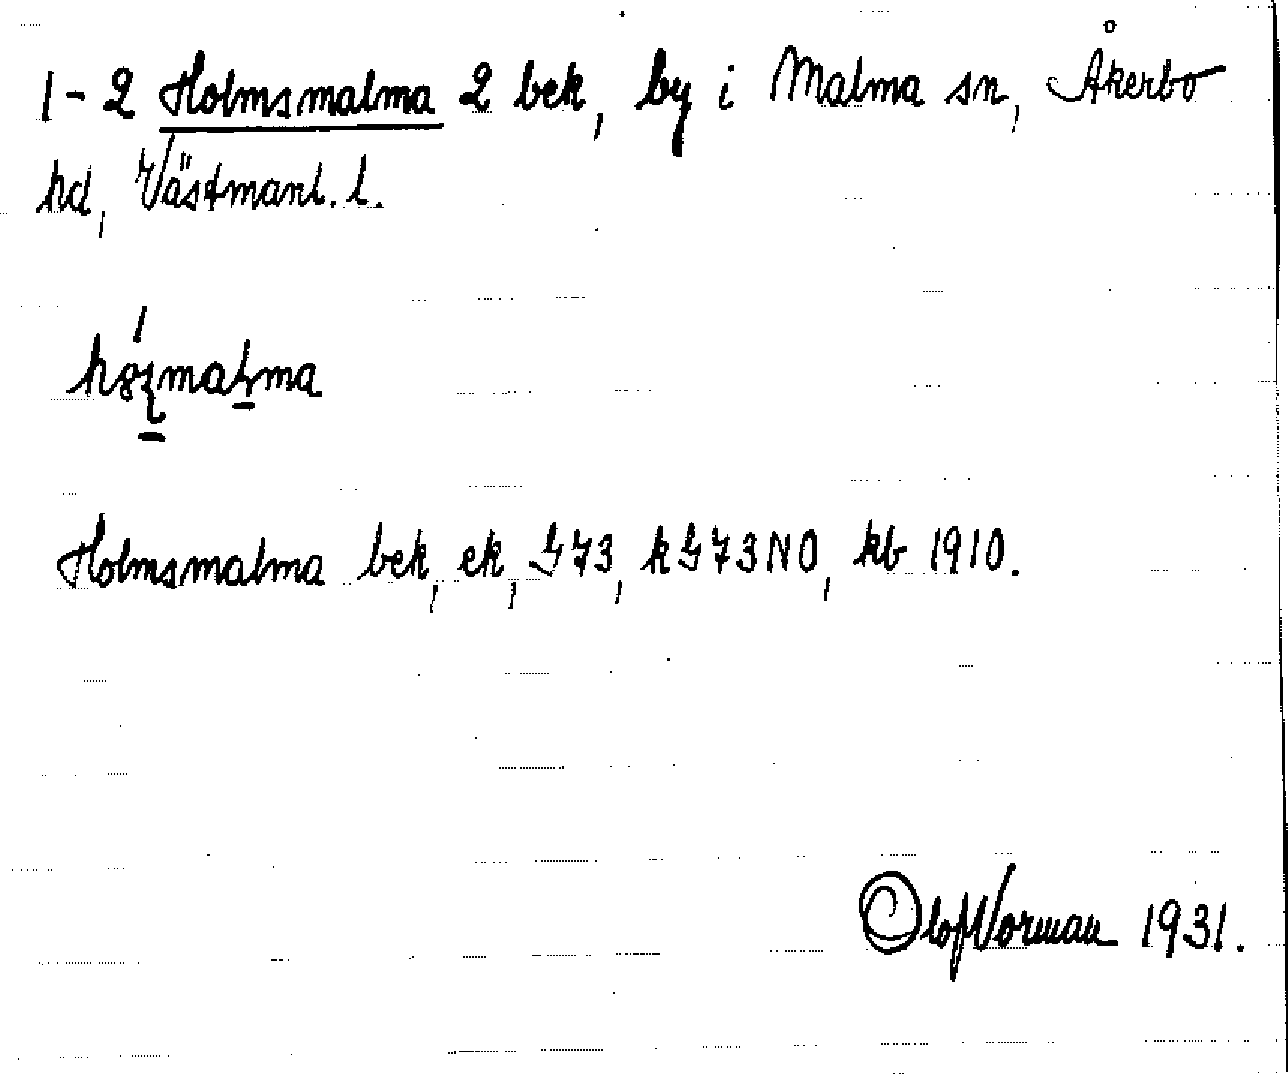 1-2 Holmsmalma 2 bek, by i Malma sn, Åkerbo
hd, Västmanl. l.
Holmsmalma bek, ek, G73, kG73NO, kb 1910.
Olof Norman 1931.